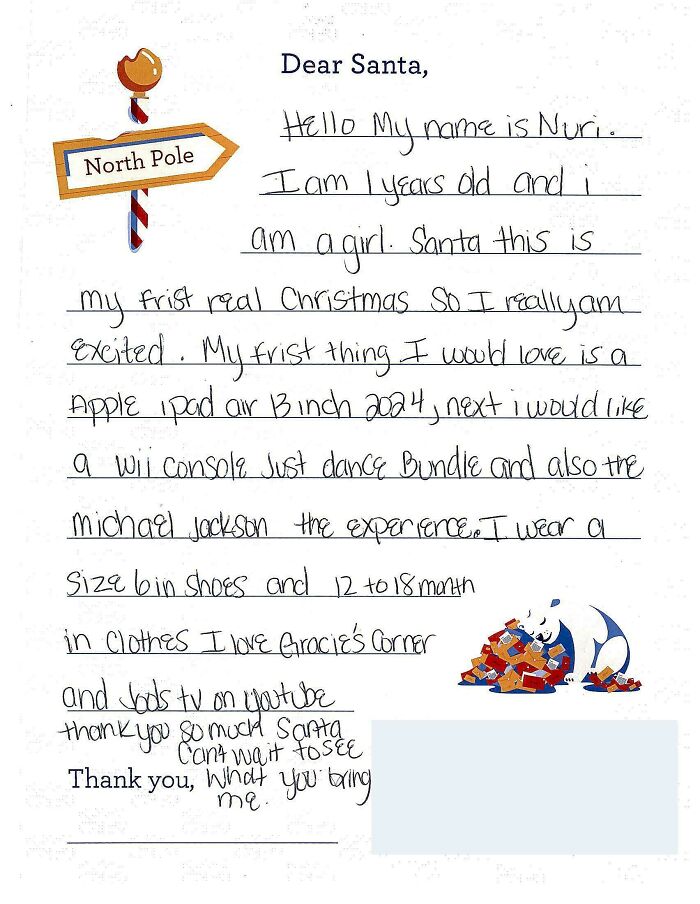 Dear Santa,
Hello My name is Nuri.
North Pole
I am 1 years old and i
am a girl. Santa this is
my frist real Christmas So I really am
excited. My frist thing I would love is a
Apple ipad air 13 inch 2024, next i would like
a wii console Just dance Bundle and also the
michael jackson the experience. I wear a
Size 6 in shoes and 12 to 18 month
in clothes I love Gracie's Corner
and Jools tv on youtube
thank you so much Santa
Can't wait to see
Thank you, What you bring
me.